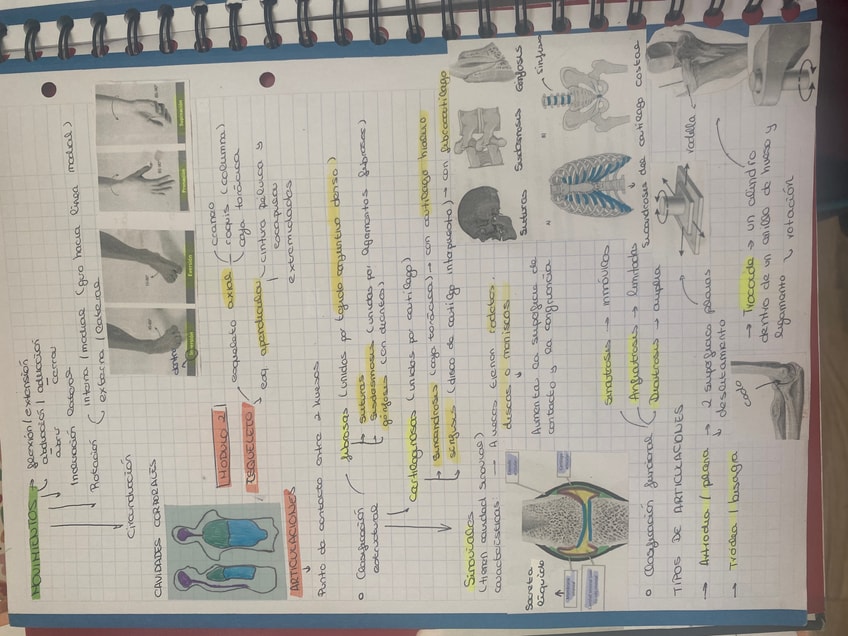 MOVIMIENTOS → flexión/extensión
abducción/aducción
abrir cerrar
Inclinación lateral
Rotación interna/medial (gira hacia línea medial)
externa/lateral
Circunducción
dentro
Eversión
Pronación
CAVIDADES CORPORALES
MODULO 2
ESQUELETO
→ esqueleto axial
cráneo
raquis (columna)
caja torácica
→ esq apendicular
cintura pélvica y
escapular
extremidades
ARTICULACIONES
↳ Punto de contacto entre 2 huesos
○ Clasificación
estructural
fibrosas (unidas por tejido conjuntivo denso)
↳ suturas
↳ sindesmosis (unidas por ligamentos fibrosos)
gónfosis (con dientes)
→ cartilaginosas (unidas por cartílago)
↳ sincondrosis (caja torácica) → con cartílago hialino
↳ sínfisis (disco de cartílago interpuesto) → con fibrocartílago
Sinoviales
(tienen cavidad sinovial)
características → A veces tienen rodetes,
discos o meniscos
↓
Aumentar la superficie de
contacto y la congruencia
Secreta
líquido
Suturas
Sindesmosis
Gónfosis
Sínfisis
Sincondrosis del cartílago costal
○ Clasificación funcional
Sinartrosis → inmóviles
Anfiartrosis → limitadas
Diartrosis → amplia
TIPOS DE ARTICULACIONES
→ Artrodia / plana → 2 superficies planas
↳ deslizamiento
→ Tróclea / bisagra
codo
rodilla
→ Trocoide → un cilindro
dentro de un anillo de hueso y
ligamento
↳ rotación